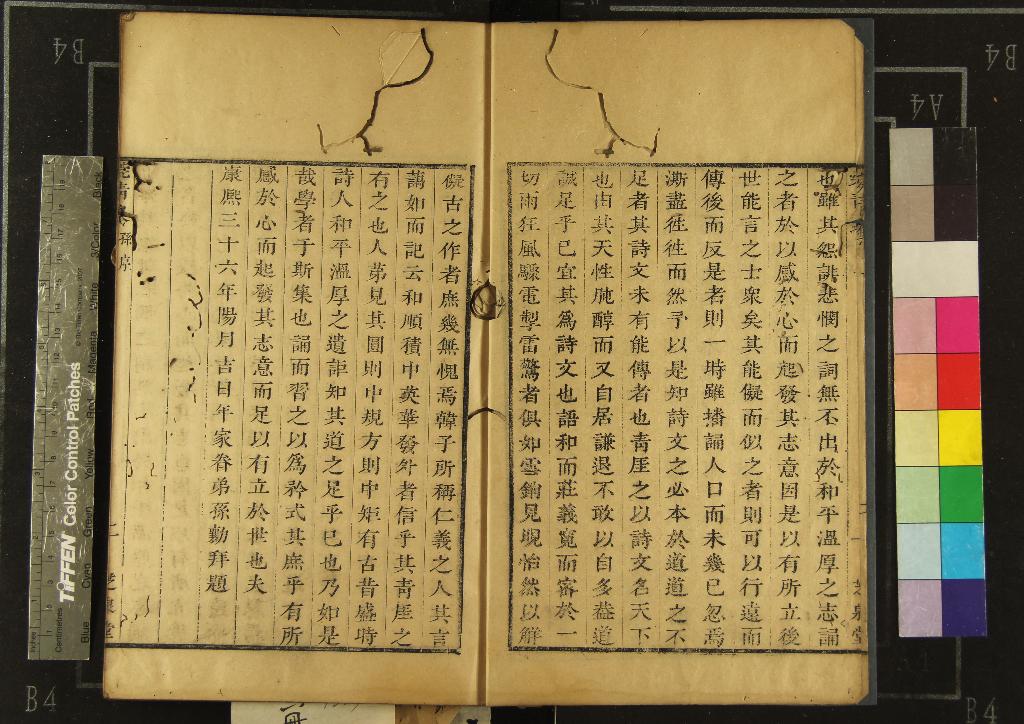 也雖其怨誹悲憫之詞無不出於和平溫厚之志誦
之者於以感於心而起發其志意因是以有所立後
世能言之士衆矣其能儗而似之者則可以行遠而
傳後而反是者則一時雖播誦人口而未幾已忽焉
澌盡徃徃而然予以是知詩文之必本於道道之不
足者其詩文未有能傳者也青厓之以詩文名天下
也由其天性施醇而又自居謙退不敢以自多葢道
誠足乎已宜其爲詩文也語和而莊義寬而密於一
切雨狂風驟電掣雷驚者俱如雪銷見晛怡然以解
儗古之作者庶幾無愧焉韓子所稱仁義之人其言
藹如而記云和順積中英華發外者信乎其青厓之
有之也人苐見其圓則中規方則中矩有古昔盛時
詩人和平溫厚之遺詎知其道之足乎巳也乃如是
哉學者于斯集也誦而習之以爲矜式其庶乎有所
感於心而起發其志意而足以有立於世也夫
康熙三十六年陽月吉日年家眷弟孫勷拜題
孫序
TIFFEN Color Control Patches
Centimetres
Inches
Blue
Cyan
Green
Yellow
Red
Magenta
White
3/Color
Black
B4
B4
A4
B4
B4